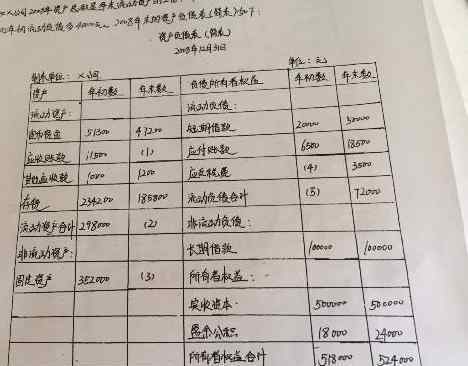 公司2008年资产总额是年末流动资产的
年初流动负债多4000元。2008年末的资产负债表(简表)如下:
资产负债表(简表)
2008年12月31日
制表单位:×公司 单位:元
资产 年初数 年末数 负债所有者权益 年初数 年末数
流动资产: 流动负债:
货币资金 51300 47200 短期借款 20000 50000
应收账款 11500 (1) 应付账款 6500 18500
其他应收款 1000 1200 应交税费 (4) 3500
存货 234200 185800 流动负债合计 (5) 72000
流动资产合计 298000 (2) 非流动负债:
非流动资产: 长期借款 100000 100000
固定资产 352000 (3) 所有者权益:
实收资本: 500000 500000
盈余公积 18000 24000
所有者权益合计 518000 524000